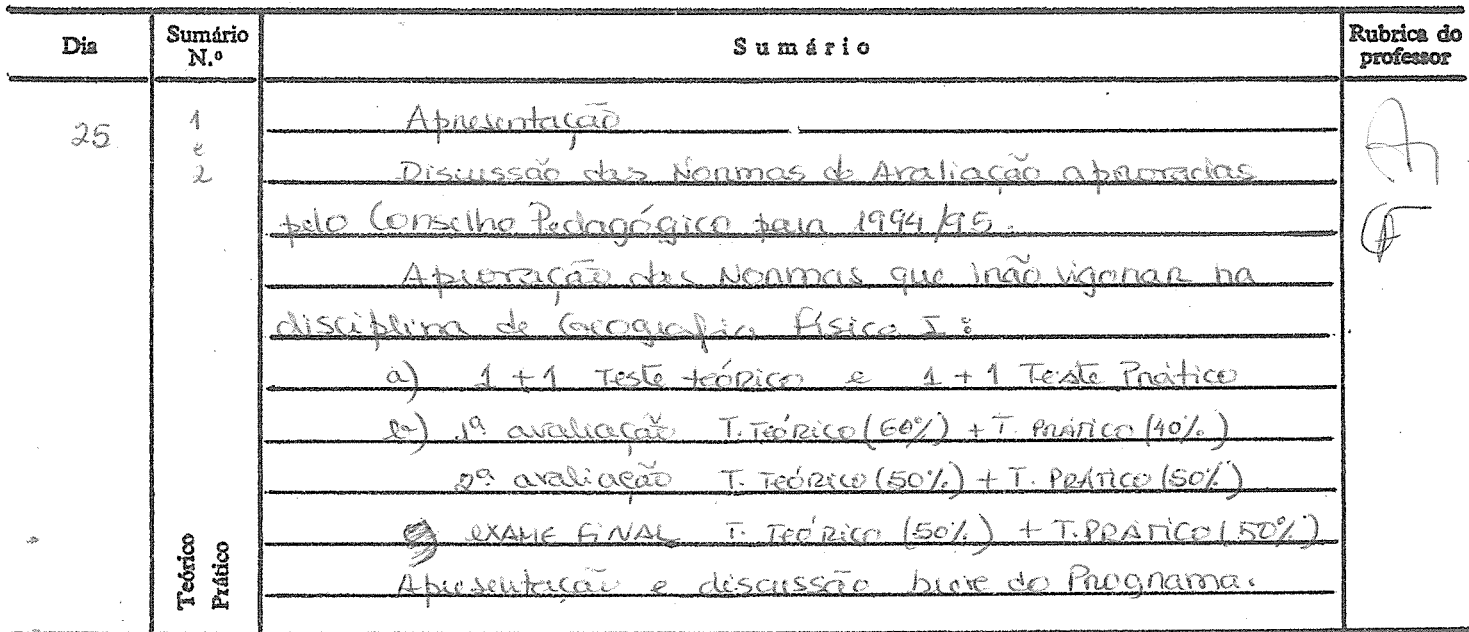 Dia Sumário N.º Sumário Rubrica do professor
25 1 e 2 Apresentação
Discussão das Normas de Avaliação aprovadas
pelo Conselho Pedagógico para 1994/95.
Aprovação das Normas que irão vigorar na
disciplina de Geografia Física I:
a) 1+1 Teste teórico e 1+1 Teste Prático
b) 1ª avaliação T. Teórico (60%) + T. Prático (40%)
2ª avaliação T. Teórico (50%) + T. Prático (50%)
EXAME FINAL T. Teórico (50%) + T. PRÁTICO (50%)
Apresentação e discussão breve do Programa.
Teórico
Prático